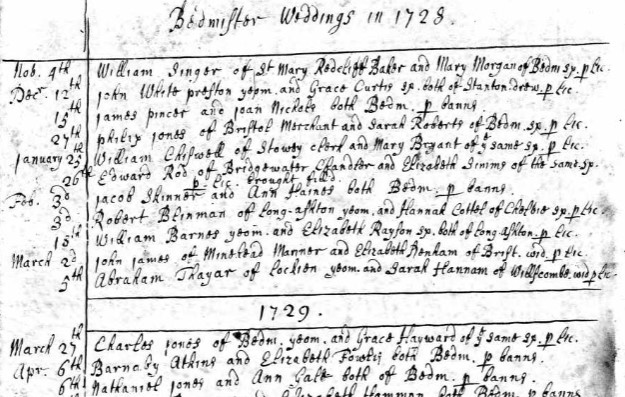 Bedmister Weddings in 1728.
Nob. 4th William Singer of St Mary Redcliff Baker and Mary Morgan of Bedm sp. p Lic.
Decr. 12th John White preston yeom. and Grace Curtis sp. both of Stanton. drew. p Lic.
15th James pincer and Joan Nichols both Bedm. p banns.
27th philip Jones of Bristol Merchant and Sarah Roberts of Bedm. sp. p Lic.
January 25th William Chiswell of Stowey clerk and Mary Bryant of ye same sp. p Lic.
26th Edward Rod of Bridgewater Chandler and Elizabeth Simms of the same. sp.
p Lic. brought filld
Feb. 3d Jacob Skinner and Ann Haines both Bedm. p banns.
3d Robert Blinman of Long-ashton yeom. and Hannah Cottel of Chelvie sp. p Lic.
15th William Barnes yeom. and Elizabeth Rayson sp. both of Long-ashton. p Lic.
March 2d John James of Minehead Manner and Elizabeth Denham of Brist. wid. p Lic.
5th Abraham Thayar of yeom. and Sarah Hannam of wid p Lic.
1729.
March 27th Charles Jones of Bedm. yeom. and Grace Hayward of ye same sp. p Lic.
Apr. 6th Barnaby Atkins and Elizabeth both Bedm. p banns.
6th Nathaniel Jones and Ann Gale both of Bedm. p banns.
Elizabeth both Bedm. p banns